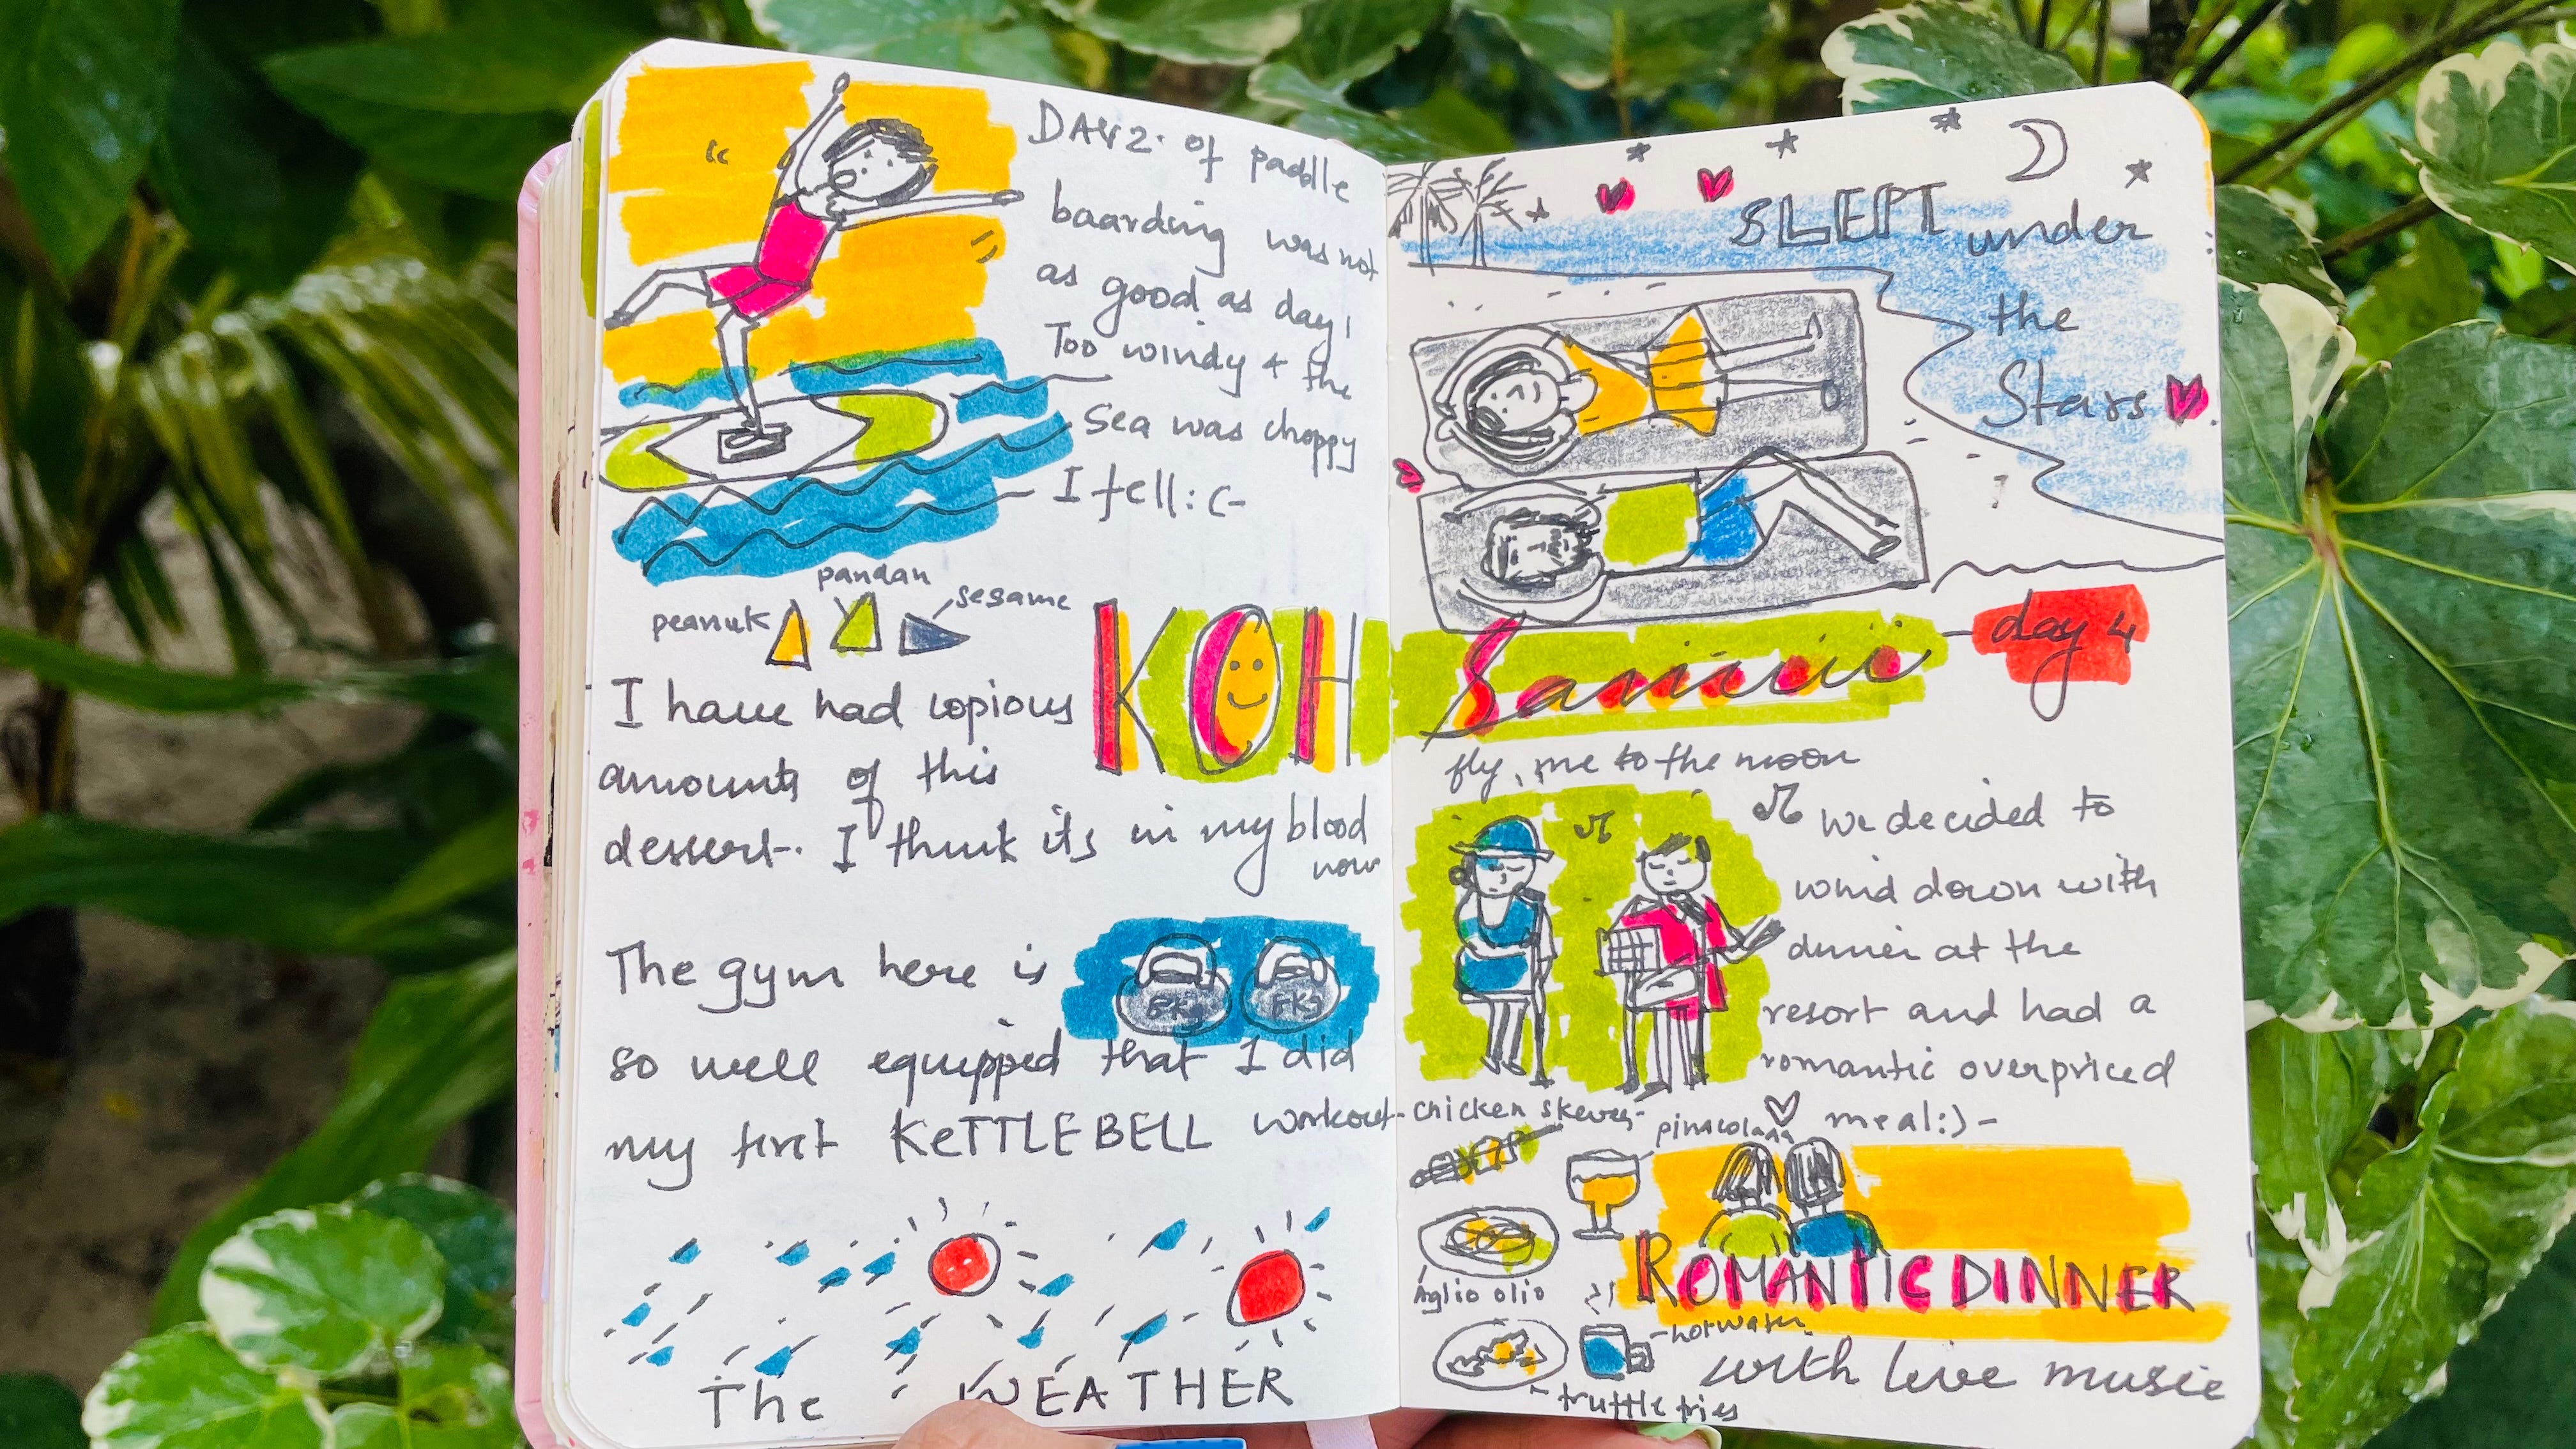 DAY 2. of paddle
baarding was not
as good as day 1
Too windy + the
Sea was choppy
I fell :(-
pandan
peanuk
sesame
I have had copious
amounts of this
dessert. I think its in my blood
now
The gym here is
so well equipped that I did
my first KeTTLEBELL workout-
The WEATHER
SLEPT under
the
Stars
KOH Samui
day 4
fly me to the moon
we decided to
wind down with
dinner at the
resort and had a
romantic overpriced
meal:)-
chicken skewers-
pinacolada
Aglio olio
hot water
truffle fries
ROMANTIC DINNER
with live music